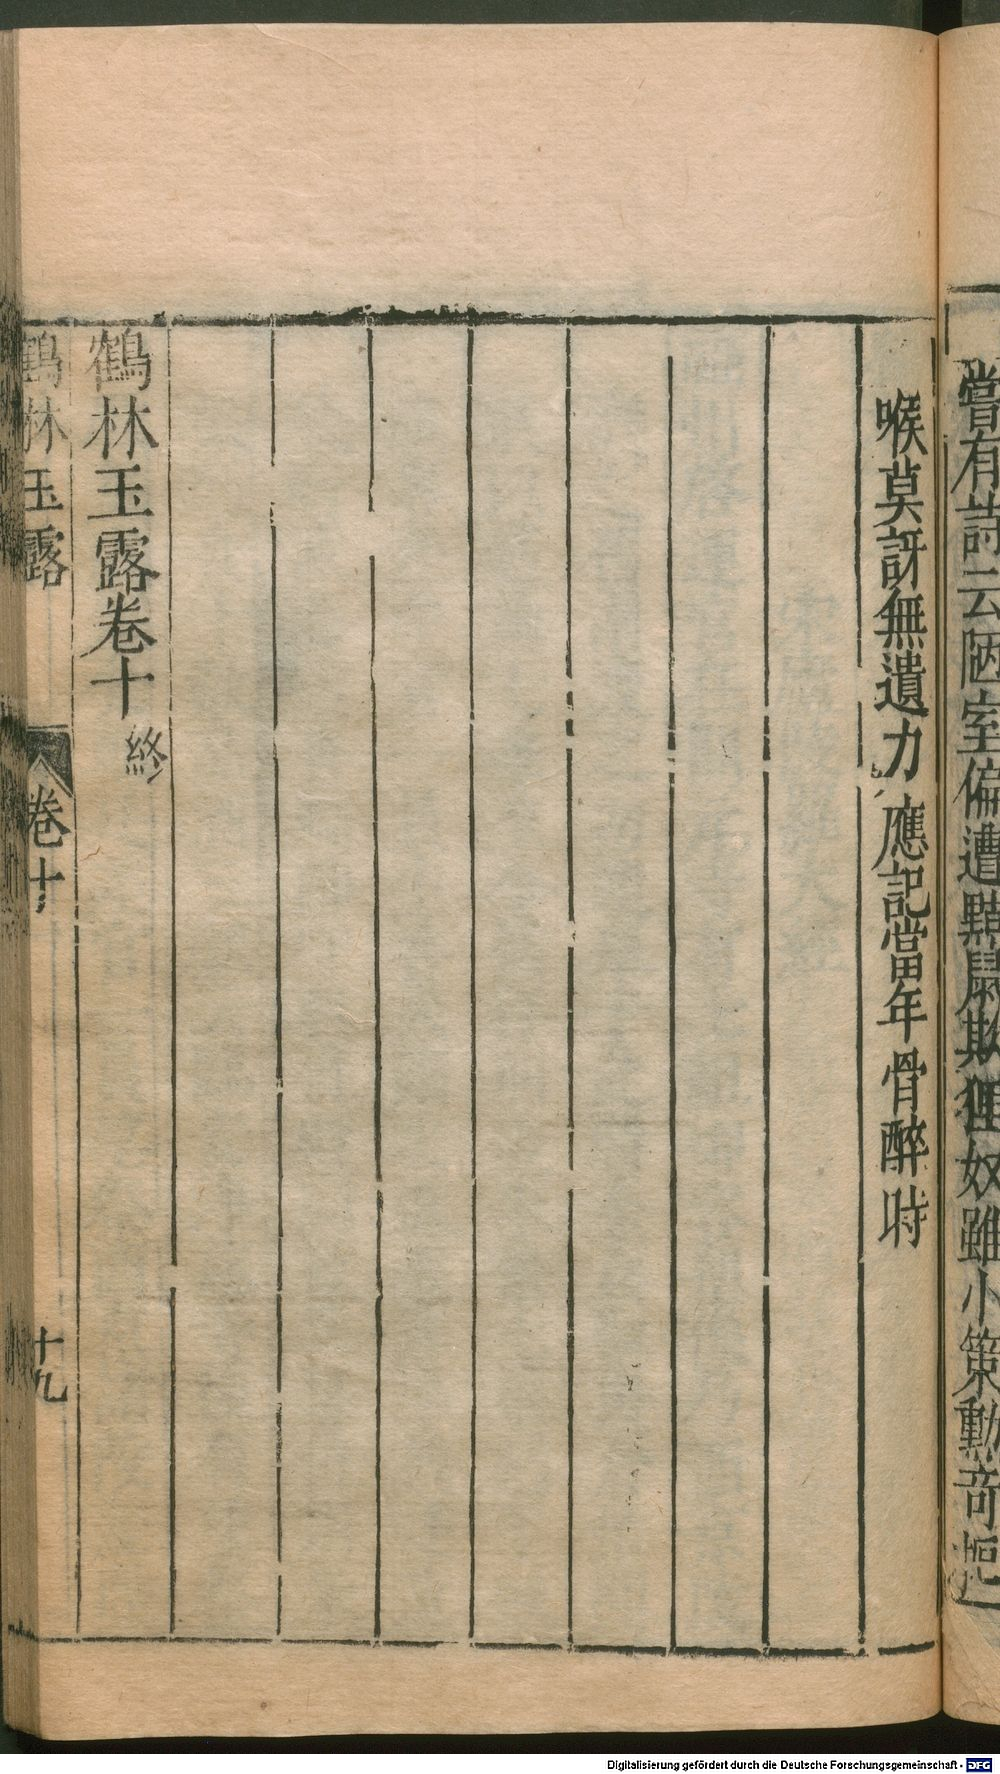 嘗有詩云陋室偏遭黠鼠欺狸奴雖小策勳奇扼
喉莫訝無遺力應記當年骨醉時
鶴林玉露卷十終
鶴林玉露 卷十 十九
Digitalisierung gefördert durch die Deutsche Forschungsgemeinschaft - DFG